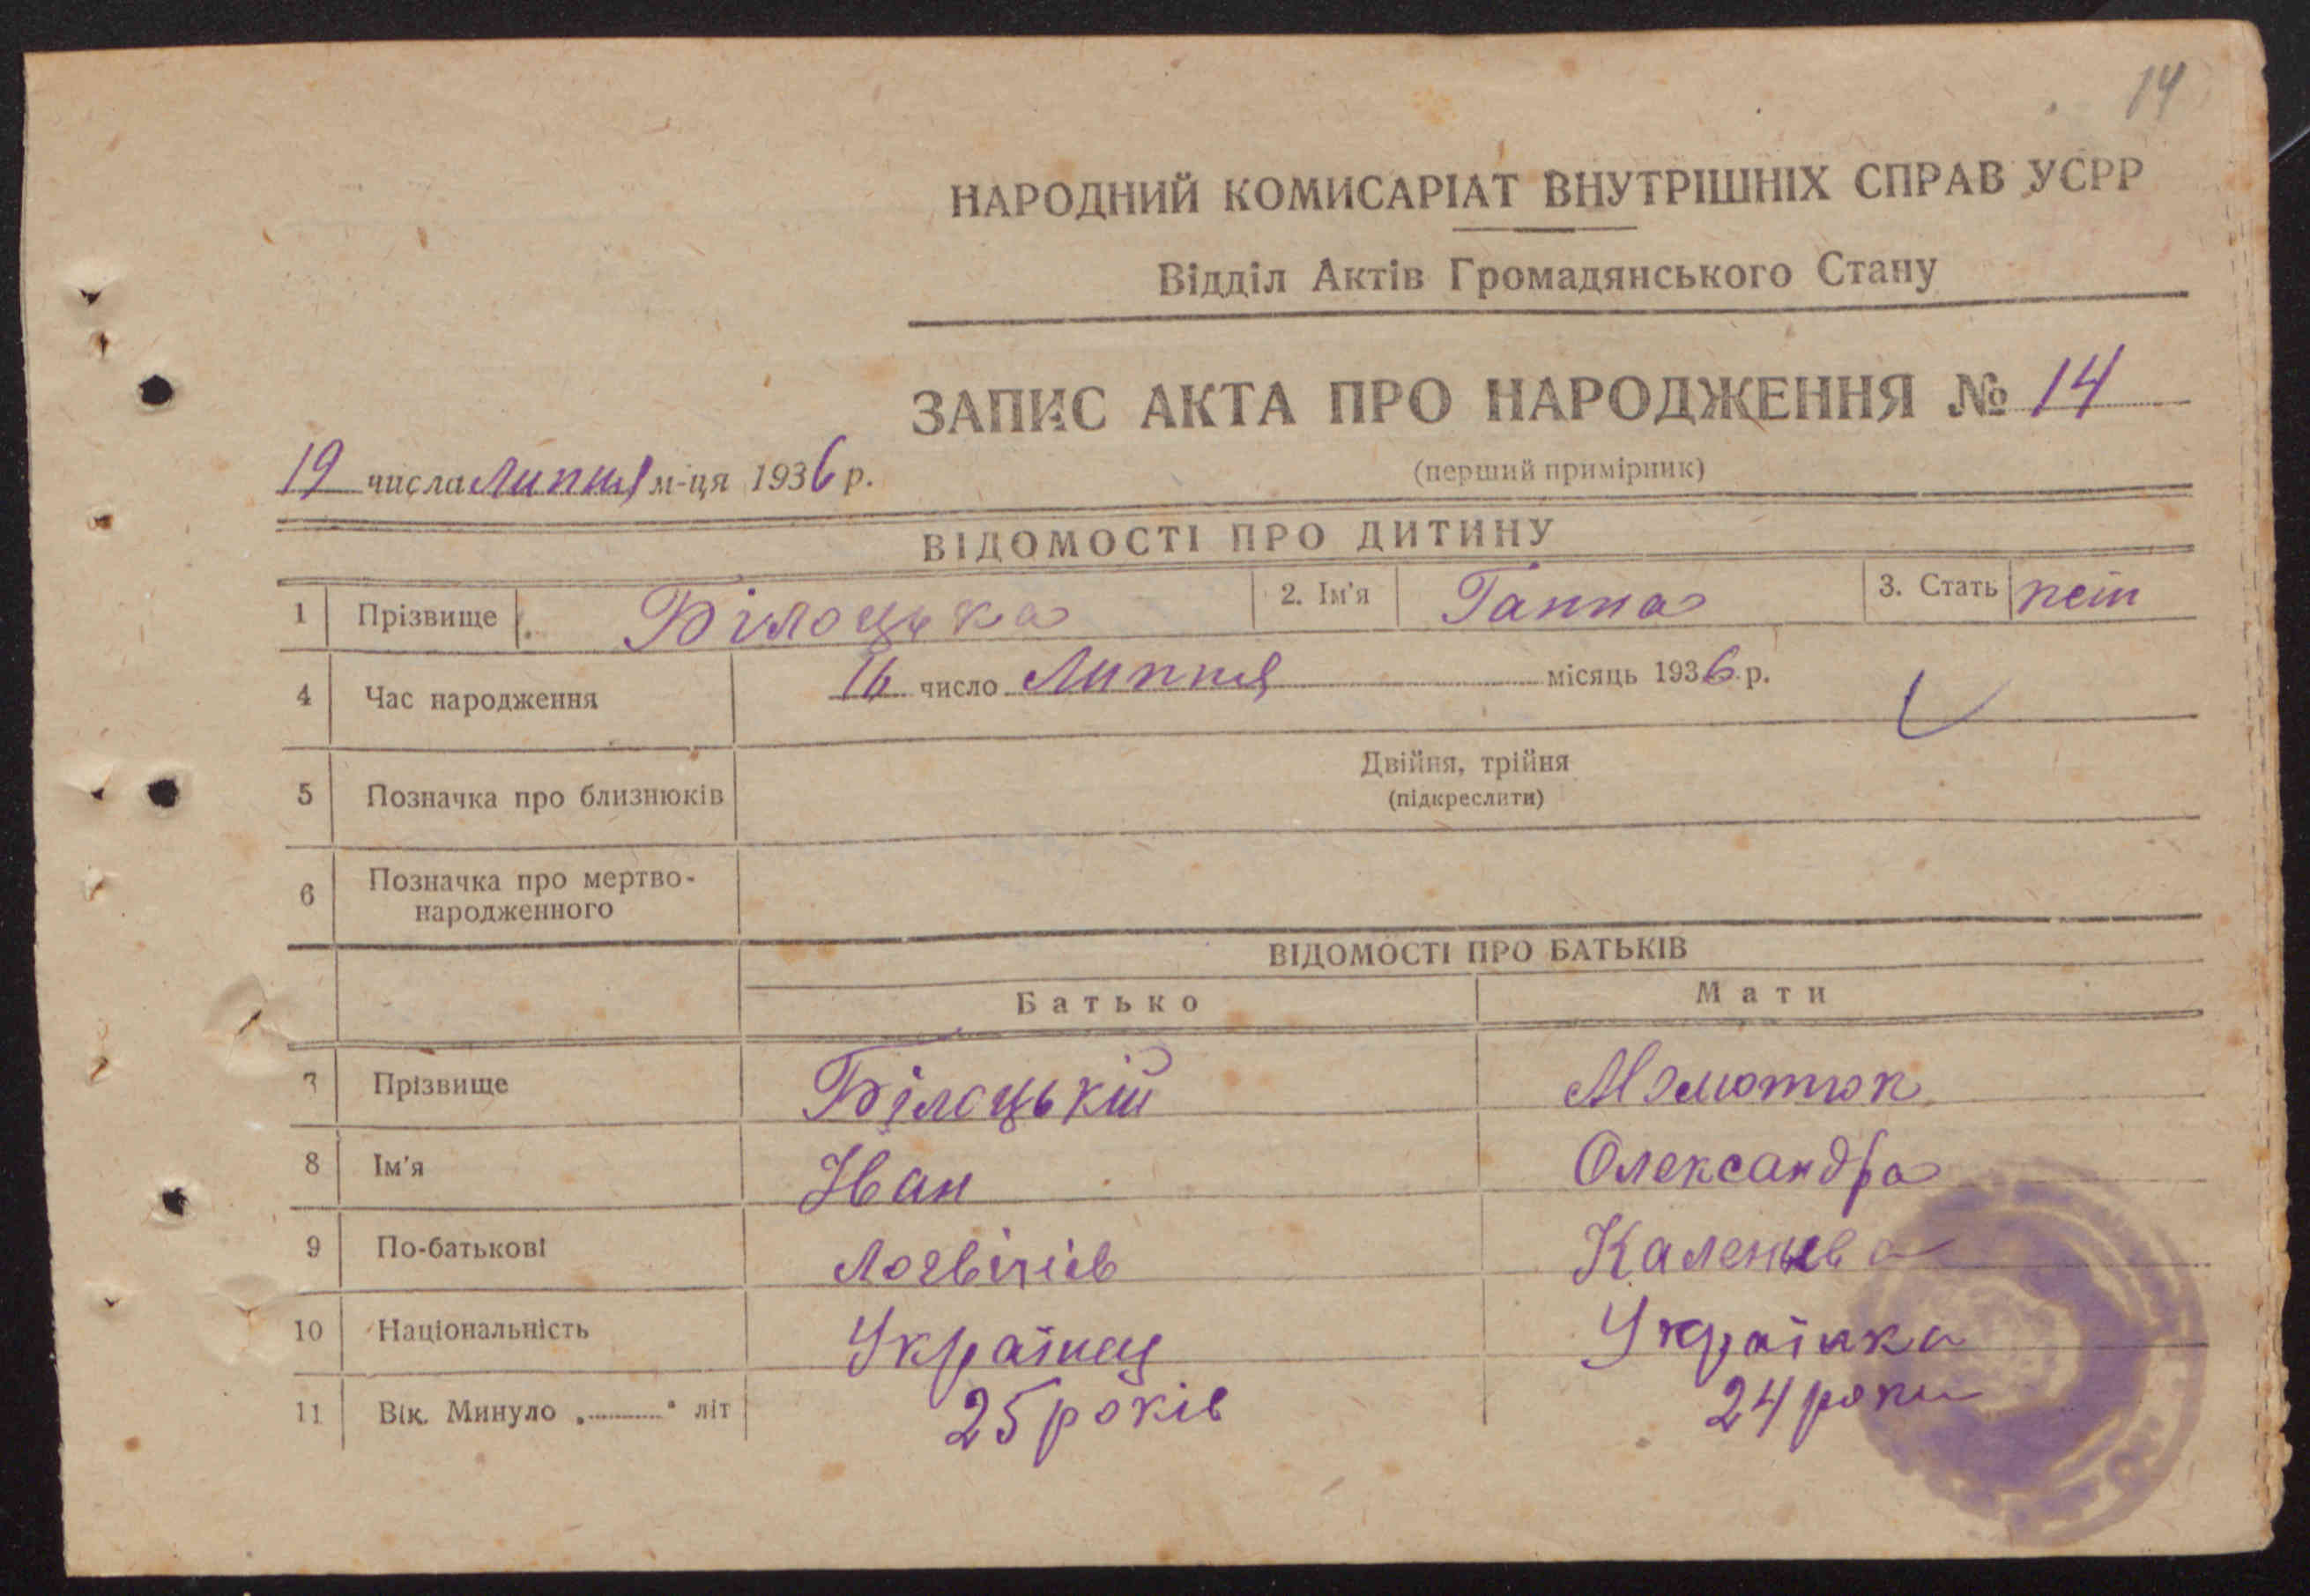 14
НАРОДНИЙ КОМИСАРІАТ ВНУТРІШНІХ СПРАВ УСРР
Відділ Актів Громадянського Стану
ЗАПИС АКТА ПРО НАРОДЖЕННЯ № 14
(перший примірник)
19 числа Липня м-ця 1936 р.
ВІДОМОСТІ ПРО ДИТИНУ
1 Прізвище Білоцька 2. Ім'я Ганна 3. Стать
4 Час народження 16 число Липня місяць 1936 р.
5 Позначка про близнюків Двійня, трійня
(підкреслити)
6 Позначка про мертво-
народженного
ВІДОМОСТІ ПРО БАТЬКІВ
Батько Мати
7 Прізвище Білоцькій
8 Ім'я Іван Олександра
9 По-батькові Логвінів
10 Національність Українець Українка
11 Вік. Минуло „ " літ 25 років 24 роки